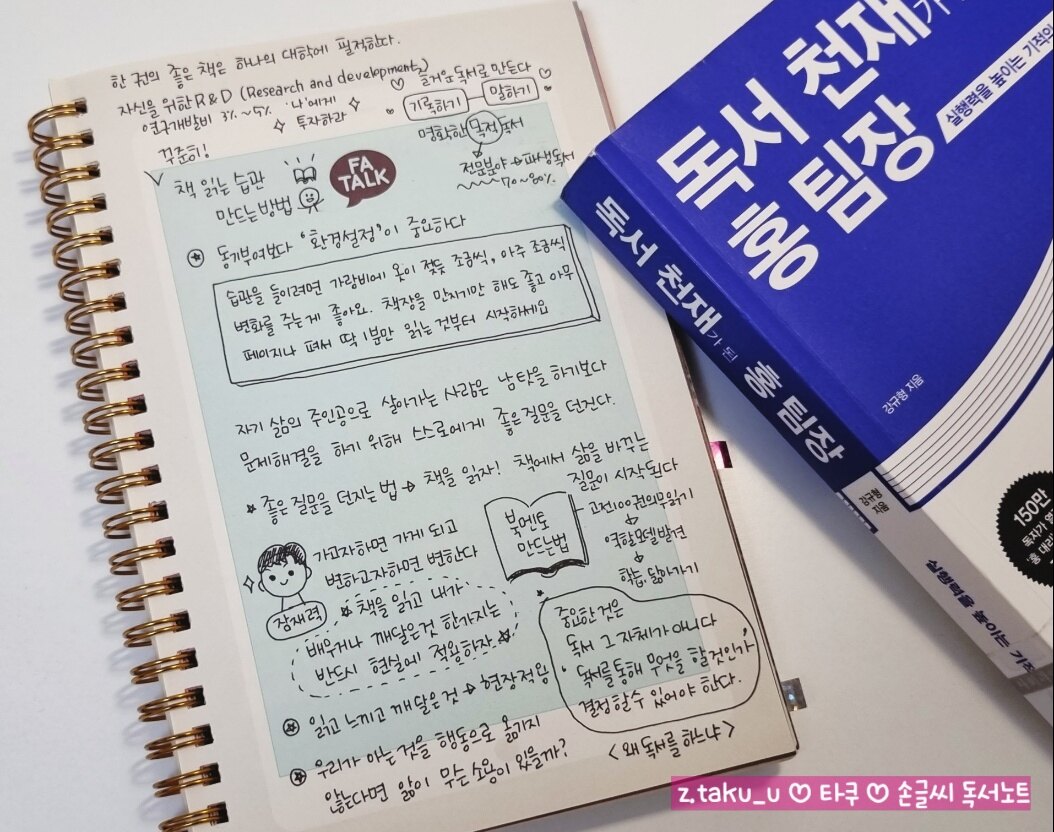 한 권의 좋은 책은 하나의 대학에 필적한다.
자신을 위한 R&D (Research and development)
연구개발비 3%~5% '나'에게
투자하라
꾸준히!
♡ 즐거운 독서로 만든다 ♡
기록하기 말하기
명확한 목적 독서
전문분야 → 파생독서
70~80%
책 읽는 습관
만드는 방법
FA
TALK
동기부여보다 '환경설정'이 중요하다
습관을 들이려면 가랑비에 옷이 젖듯 조금씩, 아주 조금씩
변화를 주는게 좋아요. 책장을 만지기만 해도 좋고 아무
페이지나 펴서 딱 1분만 읽는 것부터 시작하세요
자기 삶의 주인공으로 살아가는 사람은 남 탓을 하기보다
문제해결을 하기 위해 스스로에게 좋은 질문을 던진다.
좋은 질문을 던지는 법 → 책을 읽자! 책에서 삶을 바꾸는
질문이 시작된다
가고자하면 가게 되고
변하고자하면 변한다
잠재력
북멘토
만드는법
고전100권의모읽기
역할모델발견
학습, 닮아가기
책을 읽고 내가
배우거나 깨달은것 한가지는
반드시 현실에 적용하자
중요한 것은
독서 그 자체가 아니다
'독서를 통해 무엇을 할것인가'
결정할수 있어야 한다.
읽고 느끼고 깨달은 것 → 현장적용
우리가 아는 것을 행동으로 옮기지
않는다면 앎이 무슨 소용이 있을까?
<왜 독서를 하느냐>
독서 천재가
홍 팀장
실행력을 높이는 기적의
강규형 지음
독서 천재가 된 홍 팀장
강규형 지음
실행력을 높이는 기적
150만
독자가
'홍 대리'
z.taku_u ♡ 타쿠 ♡ 손글씨 독서노트